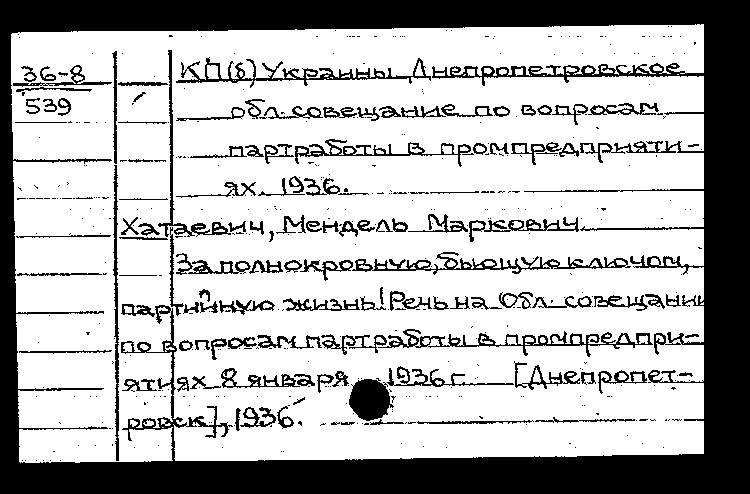 36-8
539
КП(б) Украины. Днепропетровское
обл. совещание по вопросам
партработы в промпредприяти-
ях. 1936.
Хатаевич, Мендель Маркович.
За полнокровную, бьющую ключом,
партийную жизнь! Речь на Обл. совещании
по вопросам партработы в промпредпри-
ятиях 8 января 1936 г. [Днепропет-
ровск], 1936.